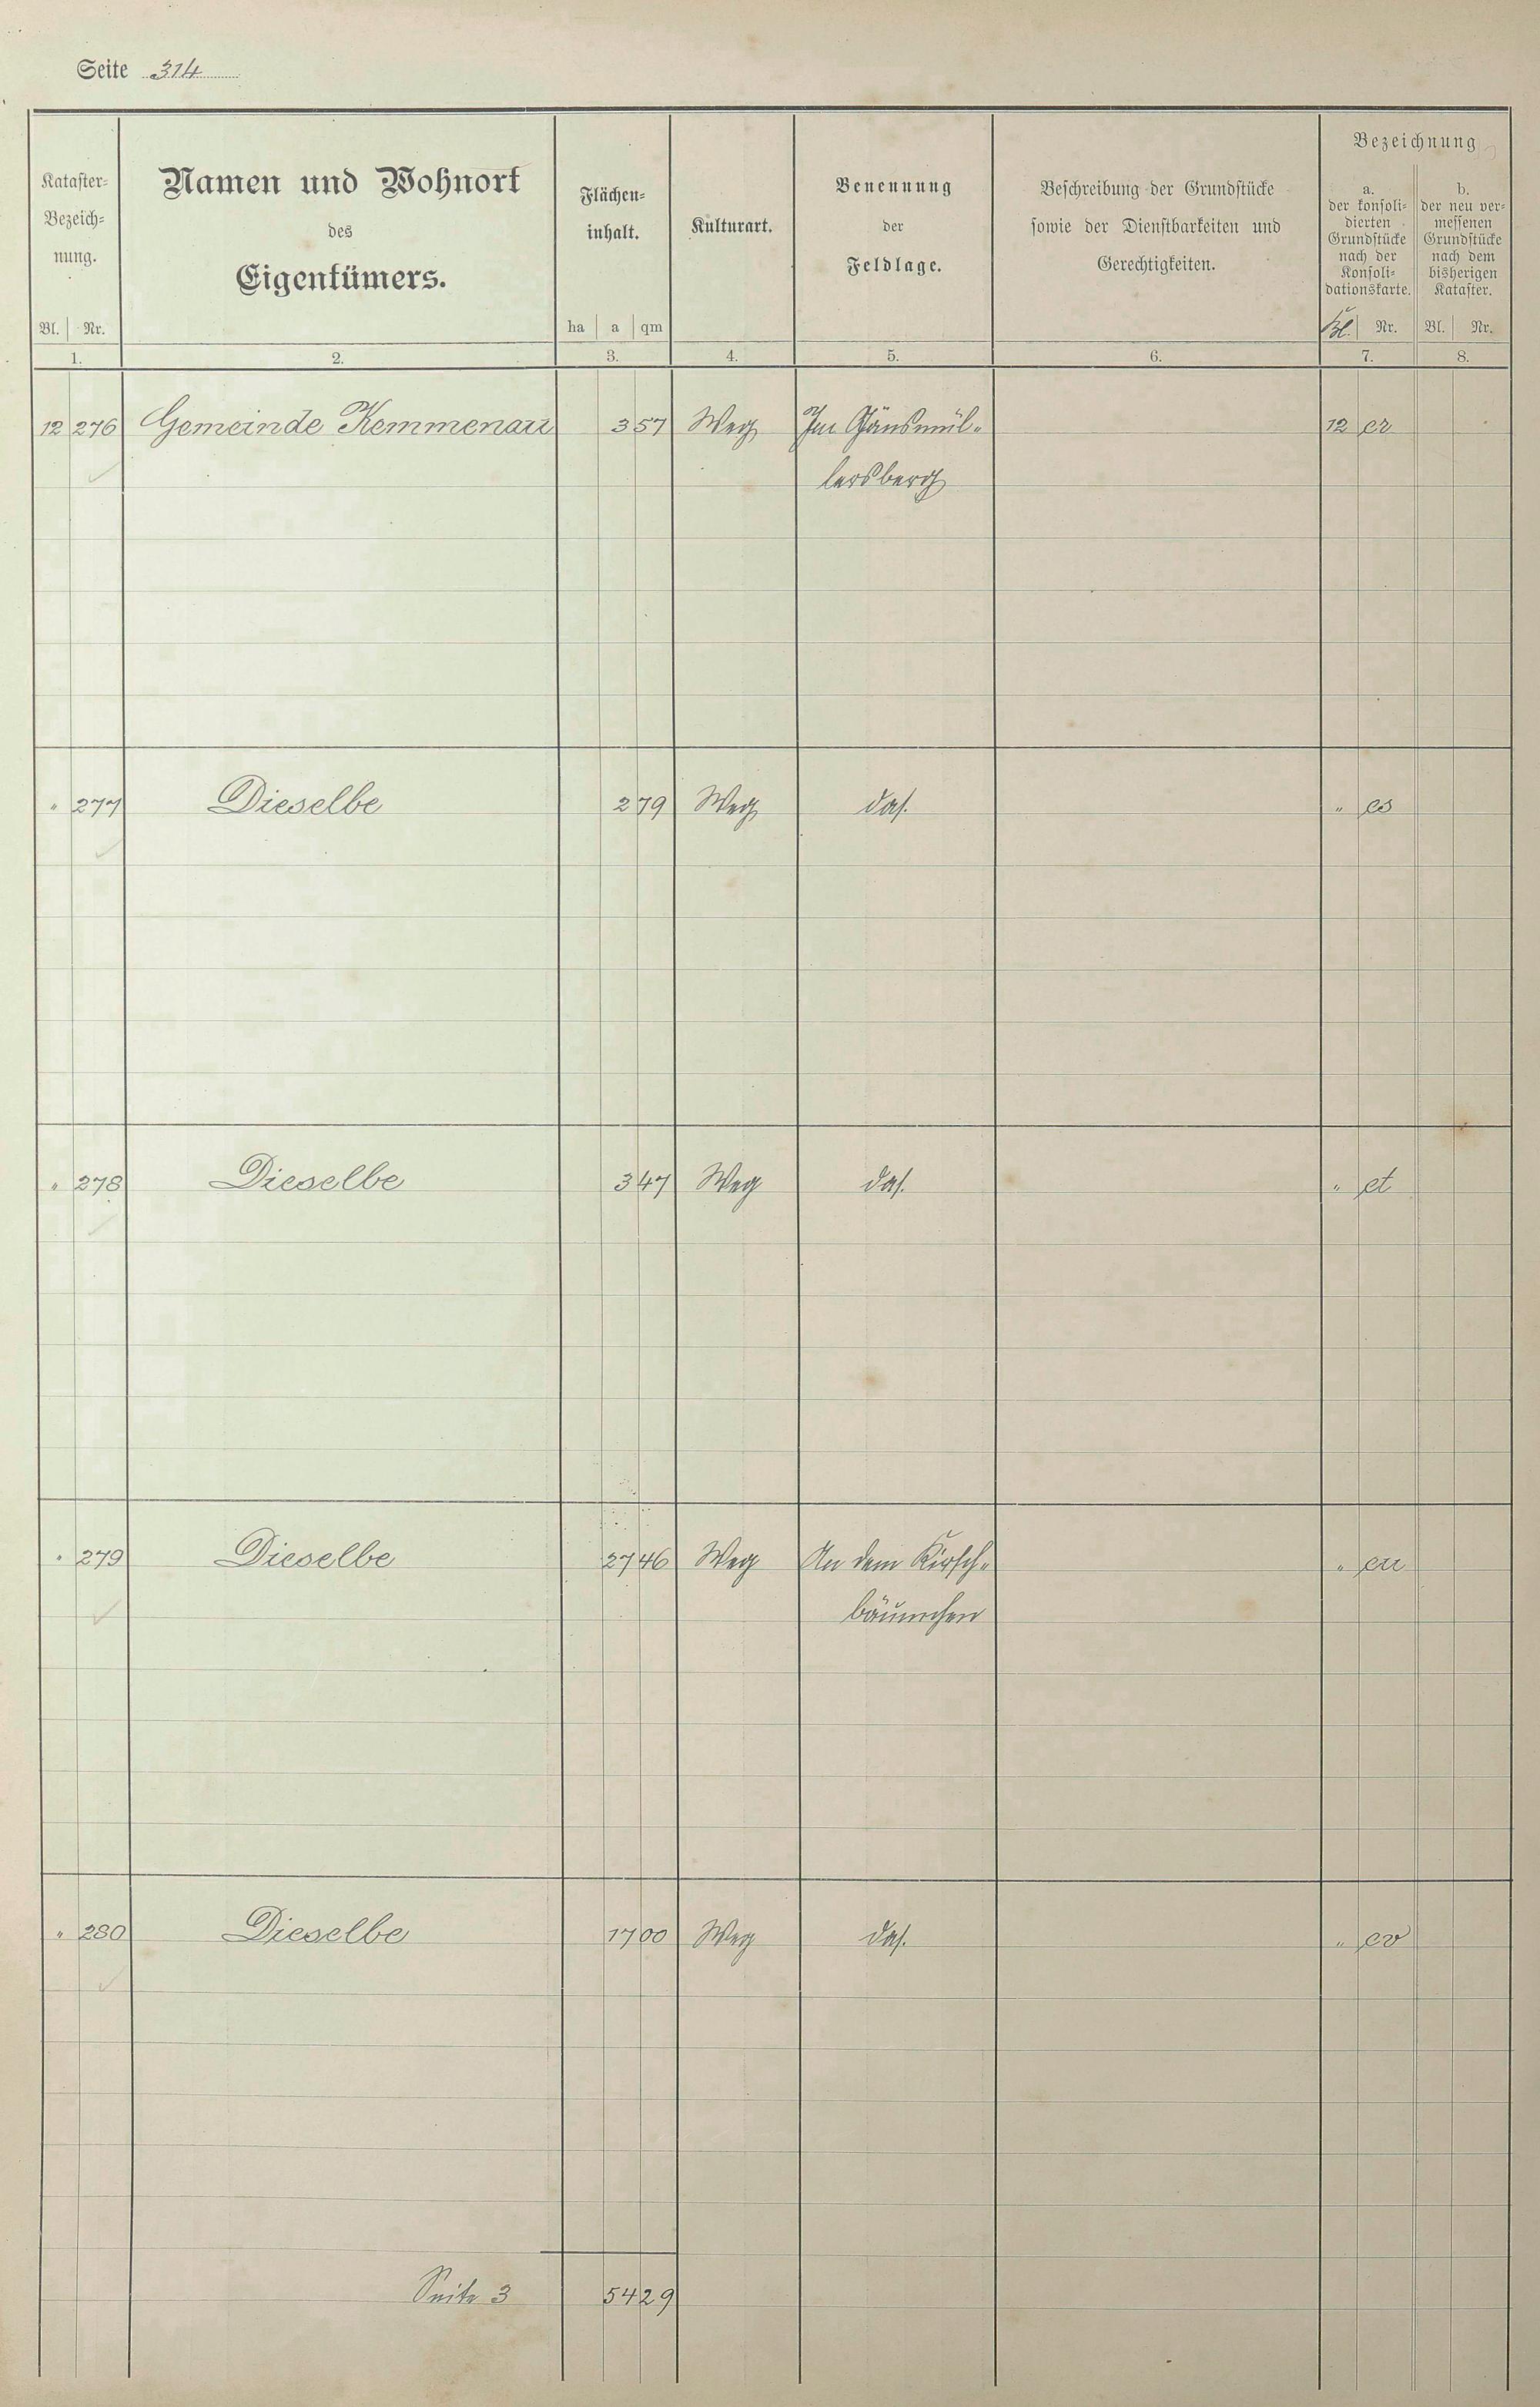 Seite 314
Kataster-
Bezeich-
nung.
Bl. Nr.
1.
Namen und Wohnort
des
Eigentümers.
2.
Flächen-
inhalt.
ha a qm
3.
Kulturart.
4.
Benennung
der
Feldlage.
5.
Beschreibung der Grundstücke
sowie der Dienstbarkeiten und
Gerechtigkeiten.
6.
Bezeichnung
a.
der konsoli-
dierten
Grundstücke
nach der
Konsoli-
dationskarte.
Kl. Nr.
7.
b.
der neu ver-
messenen
Grundstücke
nach dem
bisherigen
Kataster.
Bl. Nr.
8.
12 276 Gemeinde Kemmenau 3 57 Weg Im Gänsmül-
lersberg
12 er
" 277 Dieselbe 2 79 Weg das. " es
" 278 Dieselbe 3 47 Weg das. " et
" 279 Dieselbe 27 46 Weg An dem Kirsch-
bäumchen
" eu
" 280 Dieselbe 17 00 Weg das. " ev
Seite 3 54 29